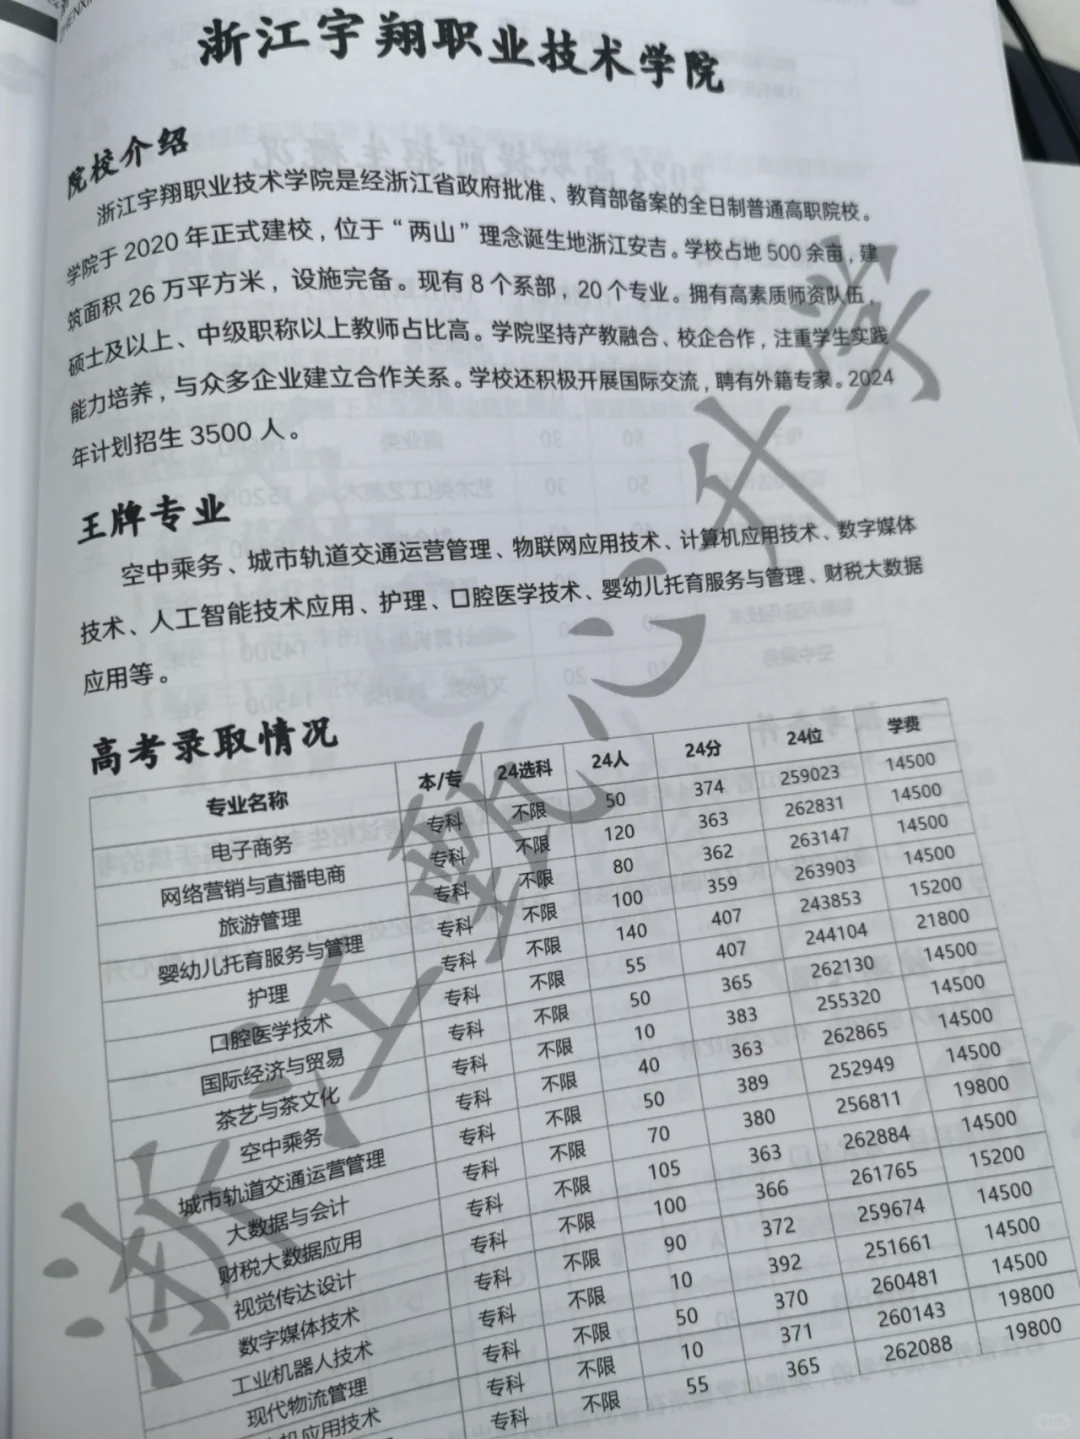 浙江宇翔职业技术学院
院校介绍
浙江宇翔职业技术学院是经浙江省政府批准、教育部备案的全日制普通高职院校。
学院于 2020 年正式建校，位于“两山”理念诞生地浙江安吉。学校占地 500 余亩，建
筑面积 26 万平方米，设施完备。现有 8 个系部，20 个专业。拥有高素质师资队伍，
硕士及以上、中级职称以上教师占比高。学院坚持产教融合、校企合作，注重学生实践
能力培养，与众多企业建立合作关系。学校还积极开展国际交流，聘有外籍专家。2024
年计划招生 3500 人。
王牌专业
空中乘务、城市轨道交通运营管理、物联网应用技术、计算机应用技术、数字媒体
技术、人工智能技术应用、护理、口腔医学技术、婴幼儿托育服务与管理、财税大数据
应用等。
高考录取情况
专业名称 本/专 24选科 24人 24分 24位 学费
电子商务 专科 不限 50 374 259023 14500
网络营销与直播电商 专科 不限 120 363 262831 14500
旅游管理 专科 不限 80 362 263147 14500
婴幼儿托育服务与管理 专科 不限 100 359 263903 14500
护理 专科 不限 140 407 243853 15200
口腔医学技术 专科 不限 55 407 244104 21800
国际经济与贸易 专科 不限 50 365 262130 14500
茶艺与茶文化 专科 不限 10 383 255320 14500
空中乘务 专科 不限 40 363 262865 14500
城市轨道交通运营管理 专科 不限 50 389 252949 14500
大数据与会计 专科 不限 70 380 256811 19800
财税大数据应用 专科 不限 105 363 262884 14500
视觉传达设计 专科 不限 100 366 261765 15200
数字媒体技术 专科 不限 90 372 259674 14500
工业机器人技术 专科 不限 10 392 251661 14500
现代物流管理 专科 不限 50 370 260481 14500
机应用技术 专科 不限 10 371 260143 19800
专科 不限 55 365 262088 19800
浙江甄心升学